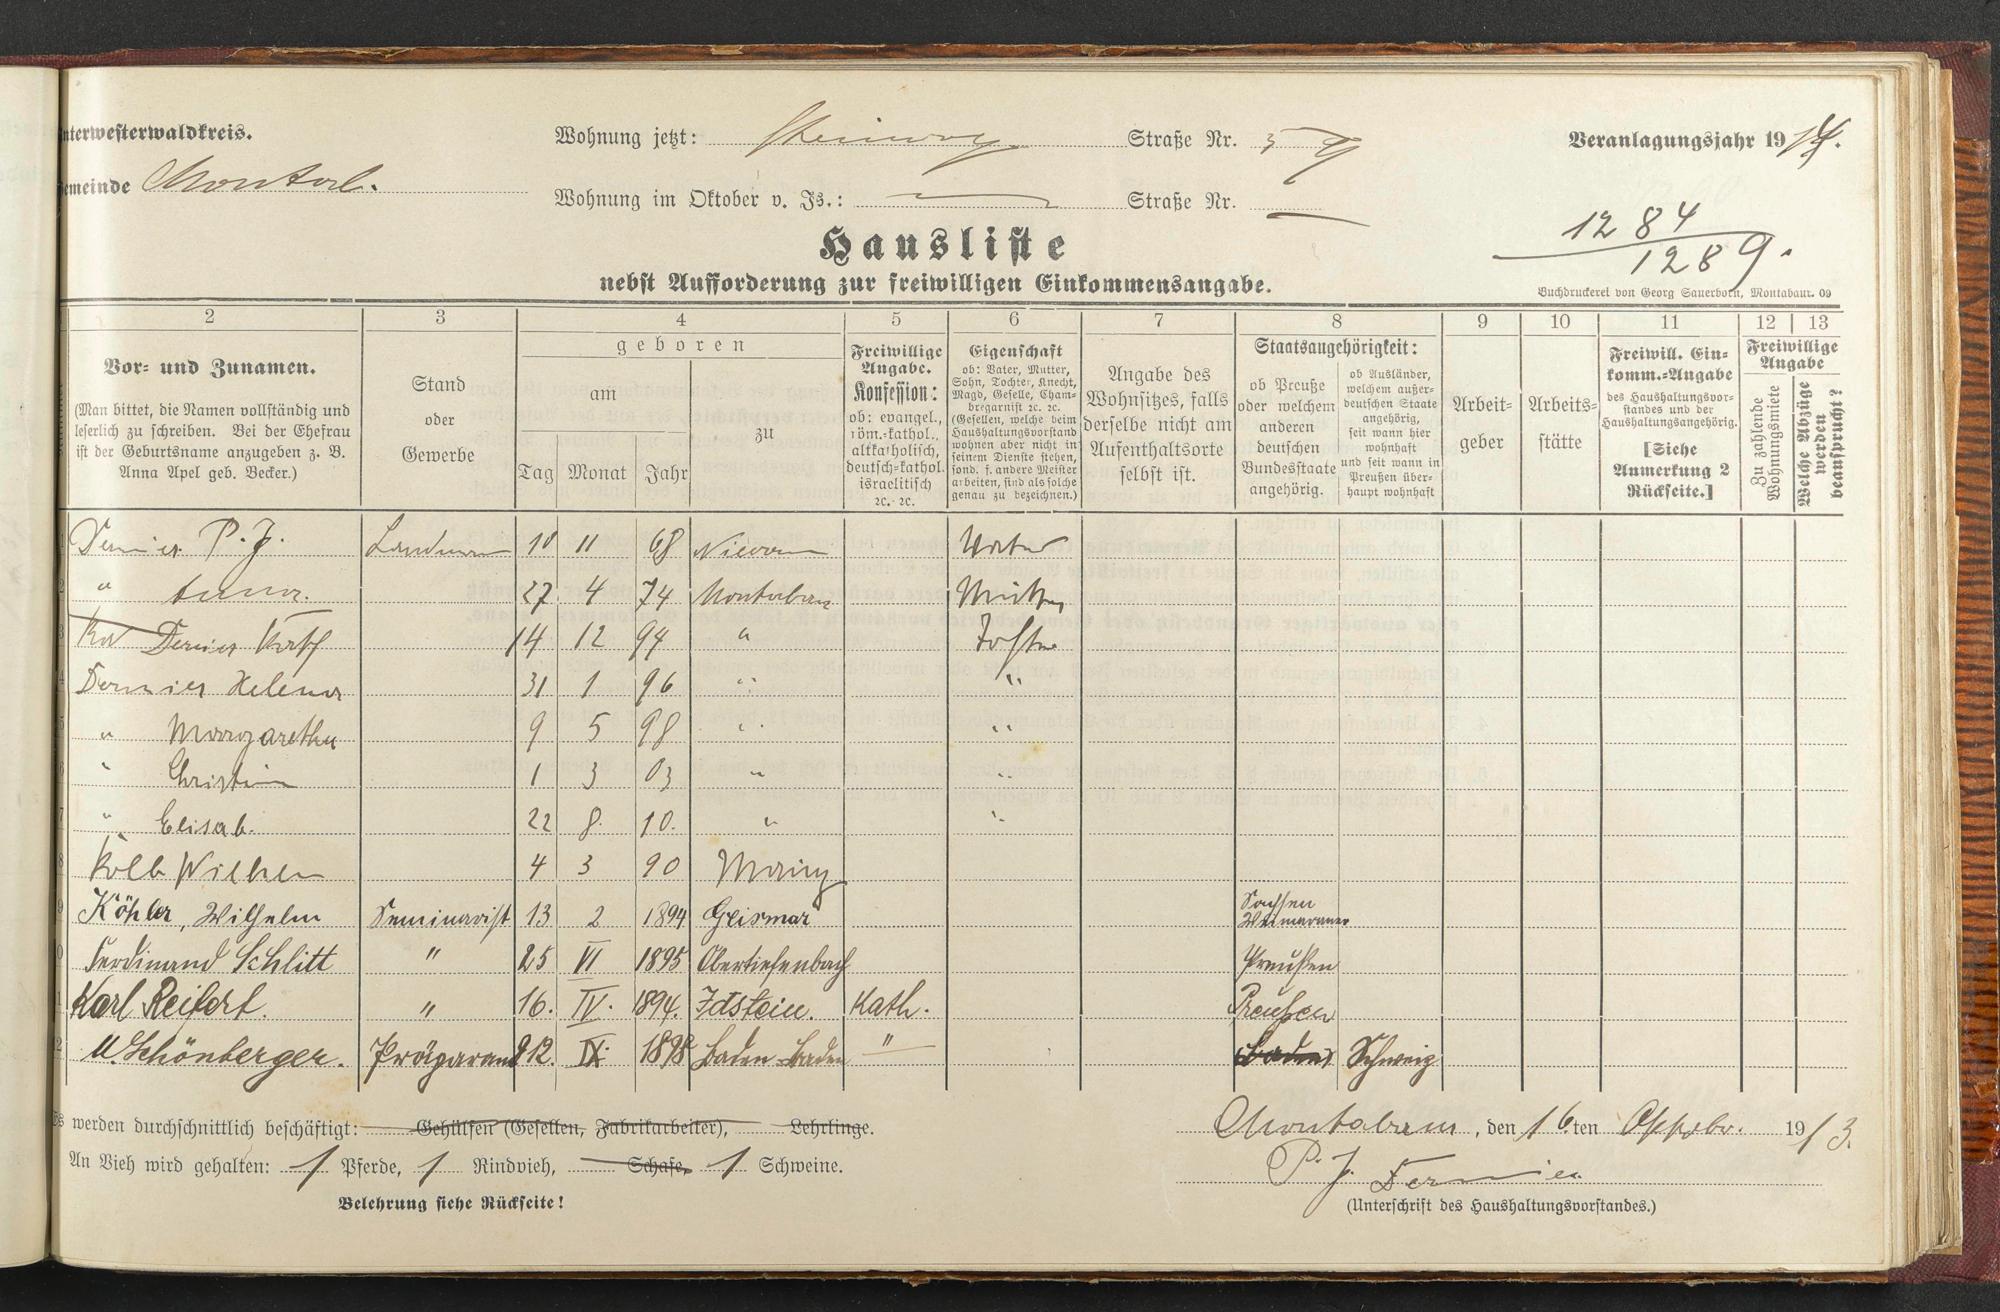 nterwesterwaldkreis.
Wohnung jetzt: Steinweg Straße Nr. 39
Veranlagungsjahr 1914.
emeinde Montab.
Wohnung im Oktober v. Js.: Straße Nr.
1284
1289.
Hausliste
nebst Aufforderung zur freiwilligen Einkommensangabe.
Buchdruckerei von Georg Sauerborn, Montabaur. 09
2 3 4 5 6 7 8 9 10 11 12 13
Vor- und Zunamen.
(Man bittet, die Namen vollständig und
leserlich zu schreiben. Bei der Ehefrau
ist der Geburtsname anzugeben z. B.
Anna Apel geb. Becker.)
Stand
oder
Gewerbe
geboren
am
Tag Monat Jahr
zu
Freiwillige
Angabe.
Konfession:
ob: evangel.,
röm.-kathol.,
altkatholisch,
deutsch-kathol.
israelitisch
ꝛc. ꝛc.
Eigenschaft
ob: Vater, Mutter,
Sohn, Tochter, Knecht,
Magd, Geselle, Cham-
bregarnist ꝛc. ꝛc.
(Gesellen, welche beim
Haushaltungsvorstand
wohnen aber nicht in
seinem Dienste stehen,
sond. f. andere Meister
arbeiten, sind als solche
genau zu bezeichnen.)
Angabe des
Wohnsitzes, falls
derselbe nicht am
Aufenthaltsorte
selbst ist.
Staatsangehörigkeit:
ob Preuße
oder welchem
anderen
deutschen
Bundesstaate
angehörig.
ob Ausländer,
welchem außer-
deutschen Staate
angehörig,
seit wann hier
wohnhaft
und seit wann in
Preußen über-
haupt wohnhaft
Arbeit-
geber
Arbeits-
stätte
Freiwill. Ein-
komm.-Angabe
des Haushaltungsvor-
standes und der
Haushaltungsangehörig.
[Siehe
Anmerkung 2
Rückseite.]
Freiwillige
Angabe
Zu zahlende
Wohnungsmiete
Welche Abzüge
werden
beansprucht?
Dernier P. J. Landmann 10 11 68 Vater
" Anna 27 4 74 Montabaur Mutter
Dernier Kath 14 12 94 " Tochter
Dernier Helena 31 1 96 " "
" Margaretha 9 5 98 " "
" Christin 1 3 03 " "
" Elisab. 22 8. 10. " "
Kolb Wilhelm 4 3 90 Mainz
Köhler, Wilhelm Seminarist 13 2 1894 Geismar Sachsen Weimaraner
Ferdinand Schlitt " 25 VI 1895 Obertiefenbach Preußen
Karl Reifert. " 16. IV. 1894. Idstein. Kath. Preußen
Schönberger. Präparand 12. IX. 1898 Baden-Baden " Baden Schweiz
Es werden durchschnittlich beschäftigt: Gehülfen (Gesellen, Fabrikarbeiter), Lehrlinge.
An Vieh wird gehalten: 1 Pferde, 1 Rindvieh, Schafe, 1 Schweine.
Belehrung siehe Rückseite!
Montabaur, den 16ten 1913.
P. J. Dernier
(Unterschrift des Haushaltungsvorstandes.)